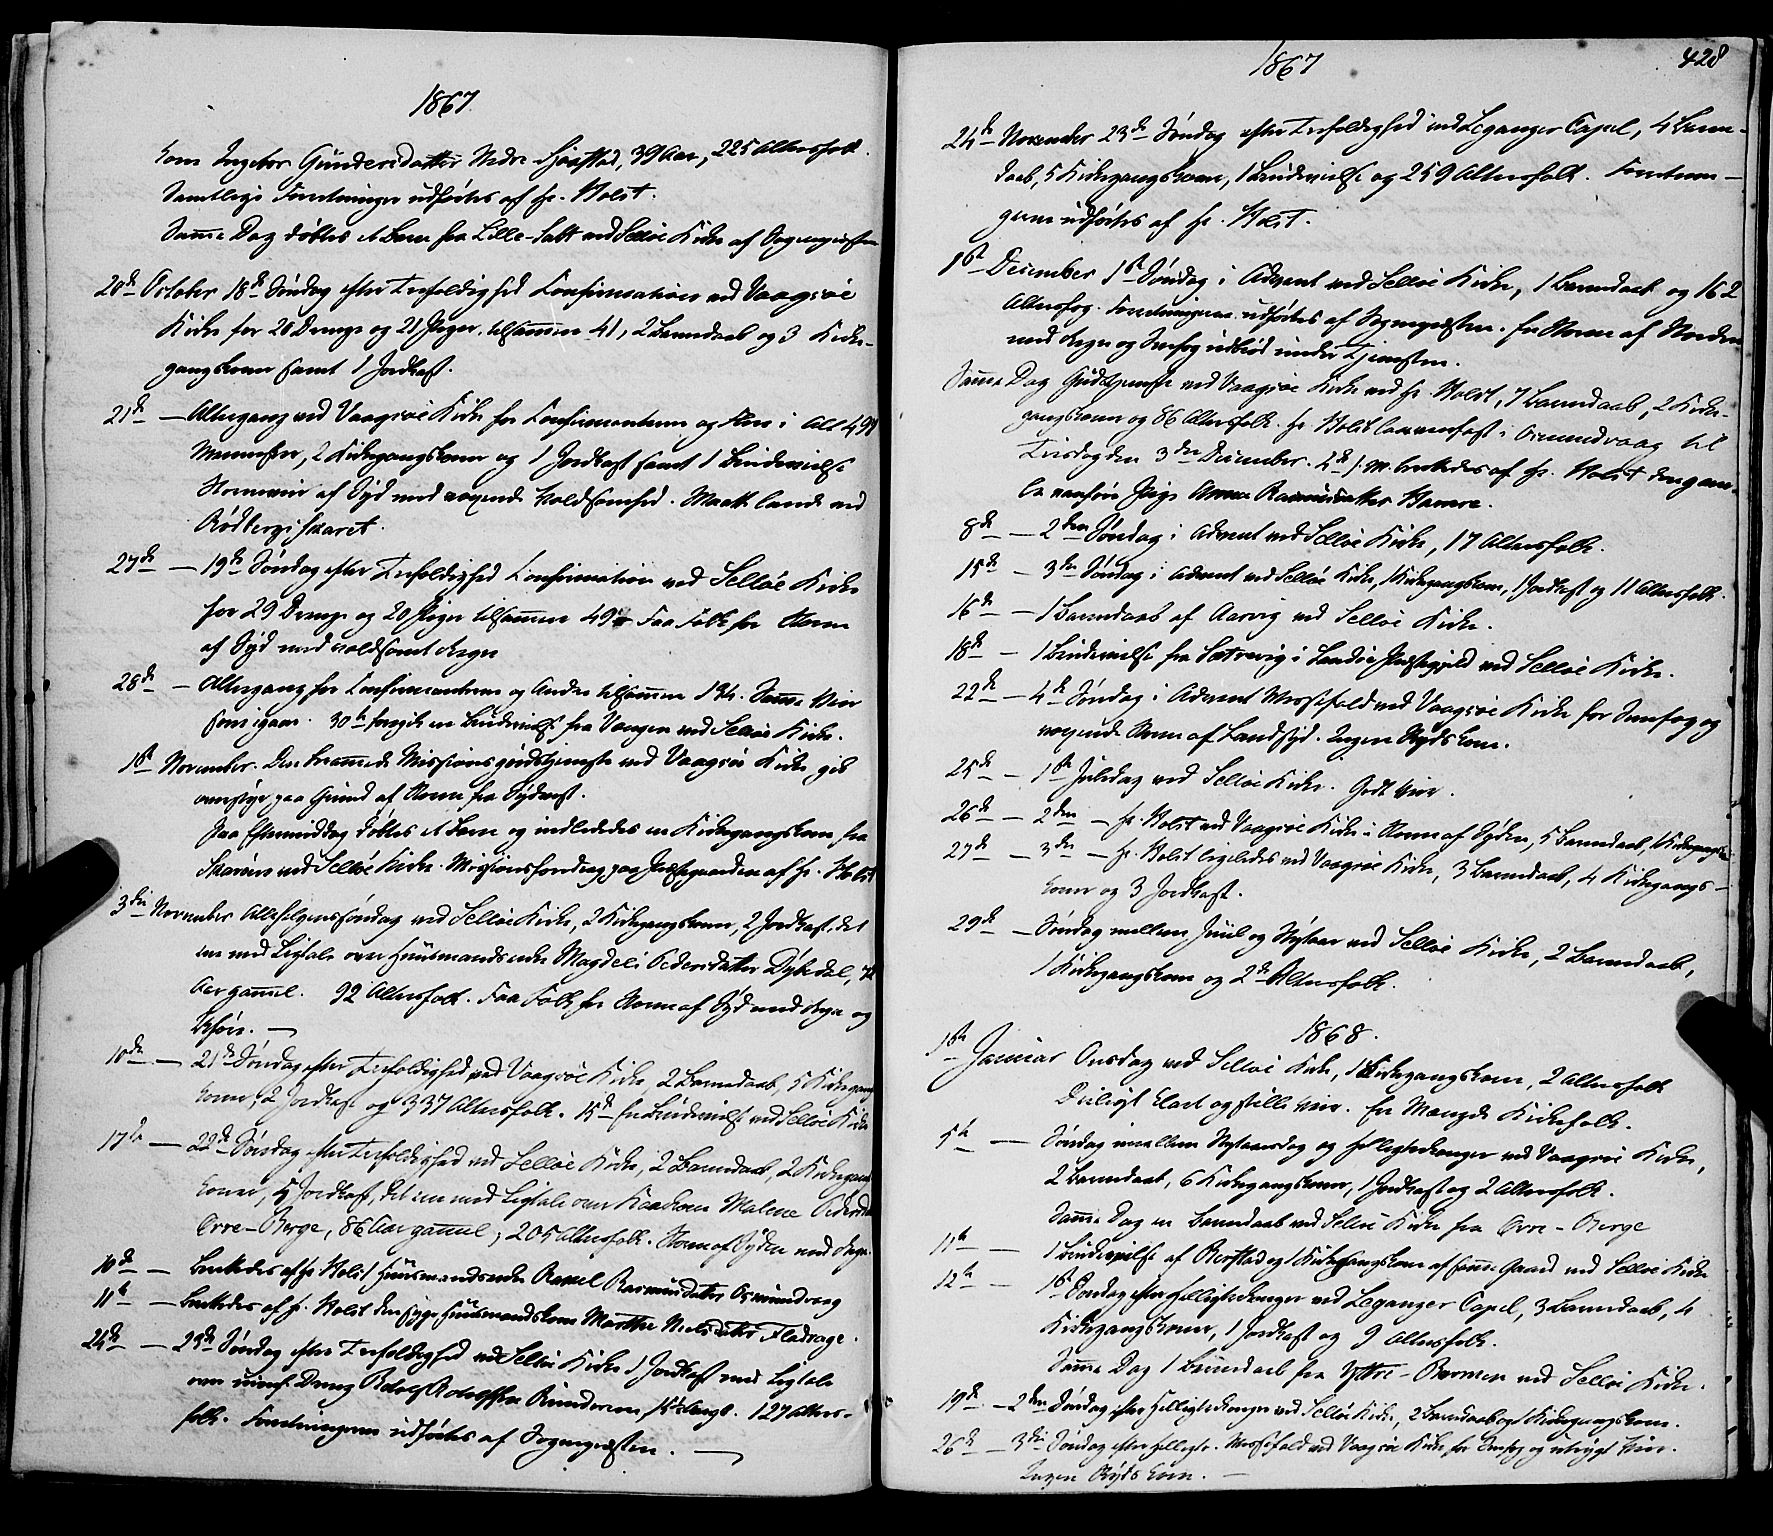 1867.
Kone Ingebor Gundersdatter Nedre Sjaastad, 39 Aar, 225 Altersfolk.
Samtlige Forretninger udførtes af Hr. Holst.
Samme Dag døbtes et Barn fra Lille-Salt ved Selløe Kirke af Sognepræsten
20de October 18de Søndag efter Trefoldighed Confirmation ved Vaagsøe
Kirke for 20 Drenge og 21 Piger, tilsammen 41, 2 Barnedaab og 3 Kirke-
gangskoner samt 1 Jordkast.
21de — Altergang ved Vaagsøe Kirke for Confirmanterne og Flere i Alt 499
Mennesker, 2 Kirkegangskoner og 1 Jordkast samt 1 Brudevielse
Stormveir af Syd med voxende Voldsomhed. Maatte lande ved
Rødbergskaret.
27de — 19de Søndag efter Trefoldighed Confirmation ved Selløe Kirke
for 29 Drenge og 20 Piger tilsammen 49. Faa Folk for Storm
af Syd med voldsomt Regn
28de — Altergang for Confirmanterne og Andre tilsammen 134. Samme Veir
som igaar. 30te foregik en Brudevielse fra Vaagen ved Selløe Kirke.
1ste November. Den berammede Missionsgudstjeneste ved Vaagsøe Kirke gik
overstyr paa Grund af Storm fra Sydvest.
Paa Eftermiddag døbtes et Barn og indlededes en Kirkegangskone fra
ved Selløe Kirke. Missionsforedrag paa Præstegaarden af Hr. Holst
3die November Allehelgenssøndag ved Selløe Kirke, 2 Kirkegangskoner, 2 Jordkast, det
ene med Ligtale over Huusmandsenke Magdeli Pedersdatter Dybedal,
Aar gammel. 92 Altersfolk. Faa Folk for Storm af Syd med Regn og
10de — 21de Søndag efter Trefoldighed ved Vaagsøe Kirke, 2 Barnedaab, 5 Kirkegangs
koner, 2 Jordkast og 337 Altersfolk. 15de En Brudevielse ved Selløe Kirke
17de — 22de Søndag efter Trefoldighed ved Selløe Kirke, 2 Barnedaab, 2 Kirkegangs
koner, 4 Jordkast, det ene med Ligtale over Kaarkone Malene Pedersdatter
Øvre-Berge, 86 Aar gammel; 205 Altersfolk. Storm af Syden med Regn.
10de — Berettedes af Hr. Holst Huusmandsenke Rasmusdatter Osmundvaag
11te — Berettedes af Hr. Holst den syge Huusmandskone Marthe Nielsdatter Flatrage.
24de — 23de Søndag efter Trefoldighed ved Selløe Kirke 1 Jordkast med Ligtale
over Dreng Rolvssøn Rundereim, 127 Alters-
folk. Forretningerne udførtes af Sognepræsten. —
1867
428
24de November 23de Søndag efter Trefoldighed ved Leganger Capel, 4 Barne-
daab, 5 Kirkegangskoner, 1 Brudevielse og 259 Altersfolk. Forretnin-
gerne udførtes af Hr. Holst.
1ste December 1ste Søndag i Advent ved Selløe Kirke, 1 Barnedaab og 162
Altersfolk. Forretningerne udførtes af Sognepræsten. En Storm af Norden
med Regn og Snefog udbrød under Tjenesten.
Samme Dag Gudstjeneste ved Vaagsøe Kirke ved Hr. Holst, 7 Barnedaab, 2 Kirke-
gangskoner og 86 Altersfolk. Hr. Holst i Osmundvaag til
Tirsdag den 3die December. 2de s. M. berettedes af Hr. Holst den gam-
le Pige Anna Rasmusdatter Hamre.
8de — 2den Søndag i Advent ved Selløe Kirke, 17 Altersfolk.
15de — 3die Søndag i Advent ved Selløe Kirke, 1 Kirkegangskone, 1 Jordkast og 11 Altersfolk.
16de — 1 Barnedaab af Aarvig ved Selløe Kirke.
18de — 1 Brudevielse fra Sætrevig i Præstegjeld ved Selløe Kirke.
22de — 4de Søndag i Advent Messefald ved Vaagsøe Kirke for Snefog og
voxende Storm af Landsyd. Ingen Skyds kom.
25de — 1ste Juledag ved Selløe Kirke. Godt Veir.
26de — 2den — Hr. Holst ved Vaagsøe Kirke i Storm af Syden, 5 Barnedaab, 1 Kirkegangsk.
27de — 3die — Hr. Holst ligeledes ved Vaagsøe Kirke, 3 Barnedaab, 4 Kirkegangs-
koner og 3 Jordkast.
29de — Søndag mellem Juul og Nytaar ved Selløe Kirke, 2 Barnedaab,
1 Kirkegangskone og 2 Altersfolk.
1868.
1ste Januar Onsdag ved Selløe Kirke, 1 Kirkegangskone, 2 Altersfolk
Deiligt klart og stille Veir. En Mængde Kirkefolk.
5te — Søndag imellem Nytaarsdag og Helligtrekonger ved Vaagsøe Kirke,
2 Barnedaab, 6 Kirkegangskoner, 1 Jordkast og 2 Altersfolk.
Samme Dag en Barnedaab ved Selløe Kirke fra Øvre-Berge
11te — 1 Brudevielse af Berstad og 1 Kirkegangskone af samme Gaard ved Selløe Kirke
12te — 1ste Søndag efter Helligtrekonger ved Leganger Capel, 3 Barnedaab, 4
Kirkegangskoner, 1 Jordkast og 9 Altersfolk.
Samme Dag 1 Barnedaab fra Yttre-Barmen ved Selløe Kirke.
19de — 2den Søndag efter Helligtrekonger ved Selløe Kirke, 2 Barnedaab og 1 Kirkegangskone.
26de — 3die Søndag efter Helligtr. Messefald ved Vaagsøe Kirke for Snefog og utrygt Veir.
Ingen Skyds kom. —